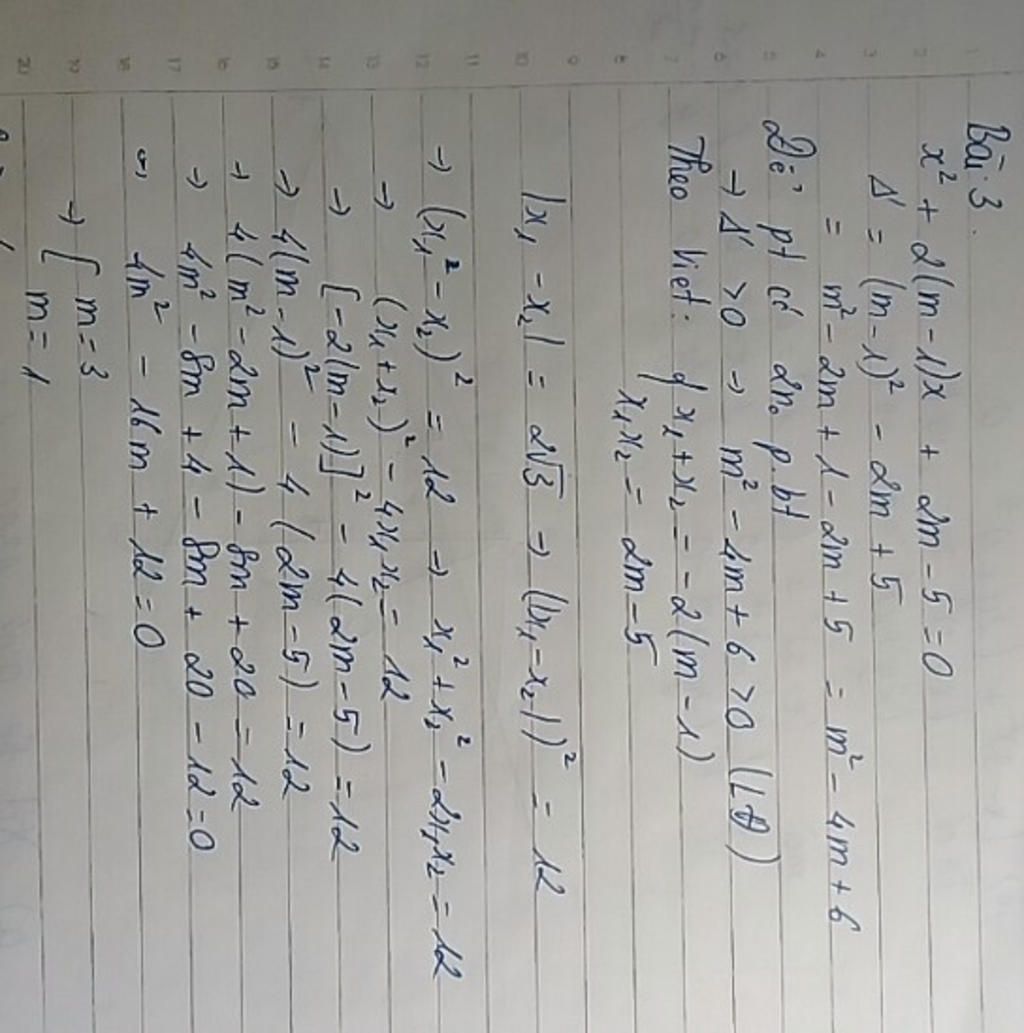 Bài 3.
x² + 2(m-1)x + 2m - 5 = 0
Δ' = (m-1)² - 2m + 5
= m² - 2m + 1 - 2m + 5 = m² - 4m + 6
Để pt có 2no p.bt
→ Δ' > 0 → m² - 4m + 6 > 0 (LĐ)
Theo Viet: { x₁ + x₂ = -2(m-1)
x₁x₂ = 2m - 5
|x₁ - x₂| = 2√3 → (|x₁ - x₂|)² = 12
→ (x₁² - x₂)² = 12 → x₁² + x₂² - 2x₁x₂ = 12
→ (x₁ + x₂)² - 4x₁x₂ = 12
→ [-2(m-1)]² - 4(2m-5) = 12
→ 4(m-1)² - 4(2m-5) = 12
→ 4(m² - 2m + 1) - 8m + 20 = 12
→ 4m² - 8m + 4 - 8m + 20 - 12 = 0
→ 4m² - 16m + 12 = 0
→ [ m = 3
m = 1